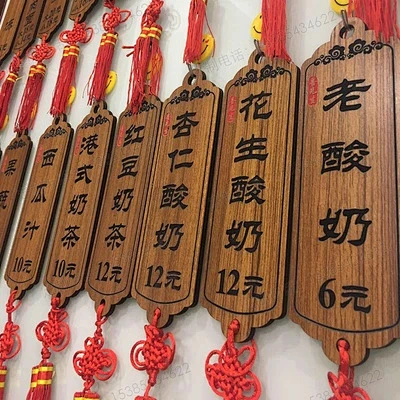 老酸奶
6元
花生酸奶
12元
杏仁酸奶
12元
红豆奶茶
12元
港式奶茶
10元
西瓜汁
10元